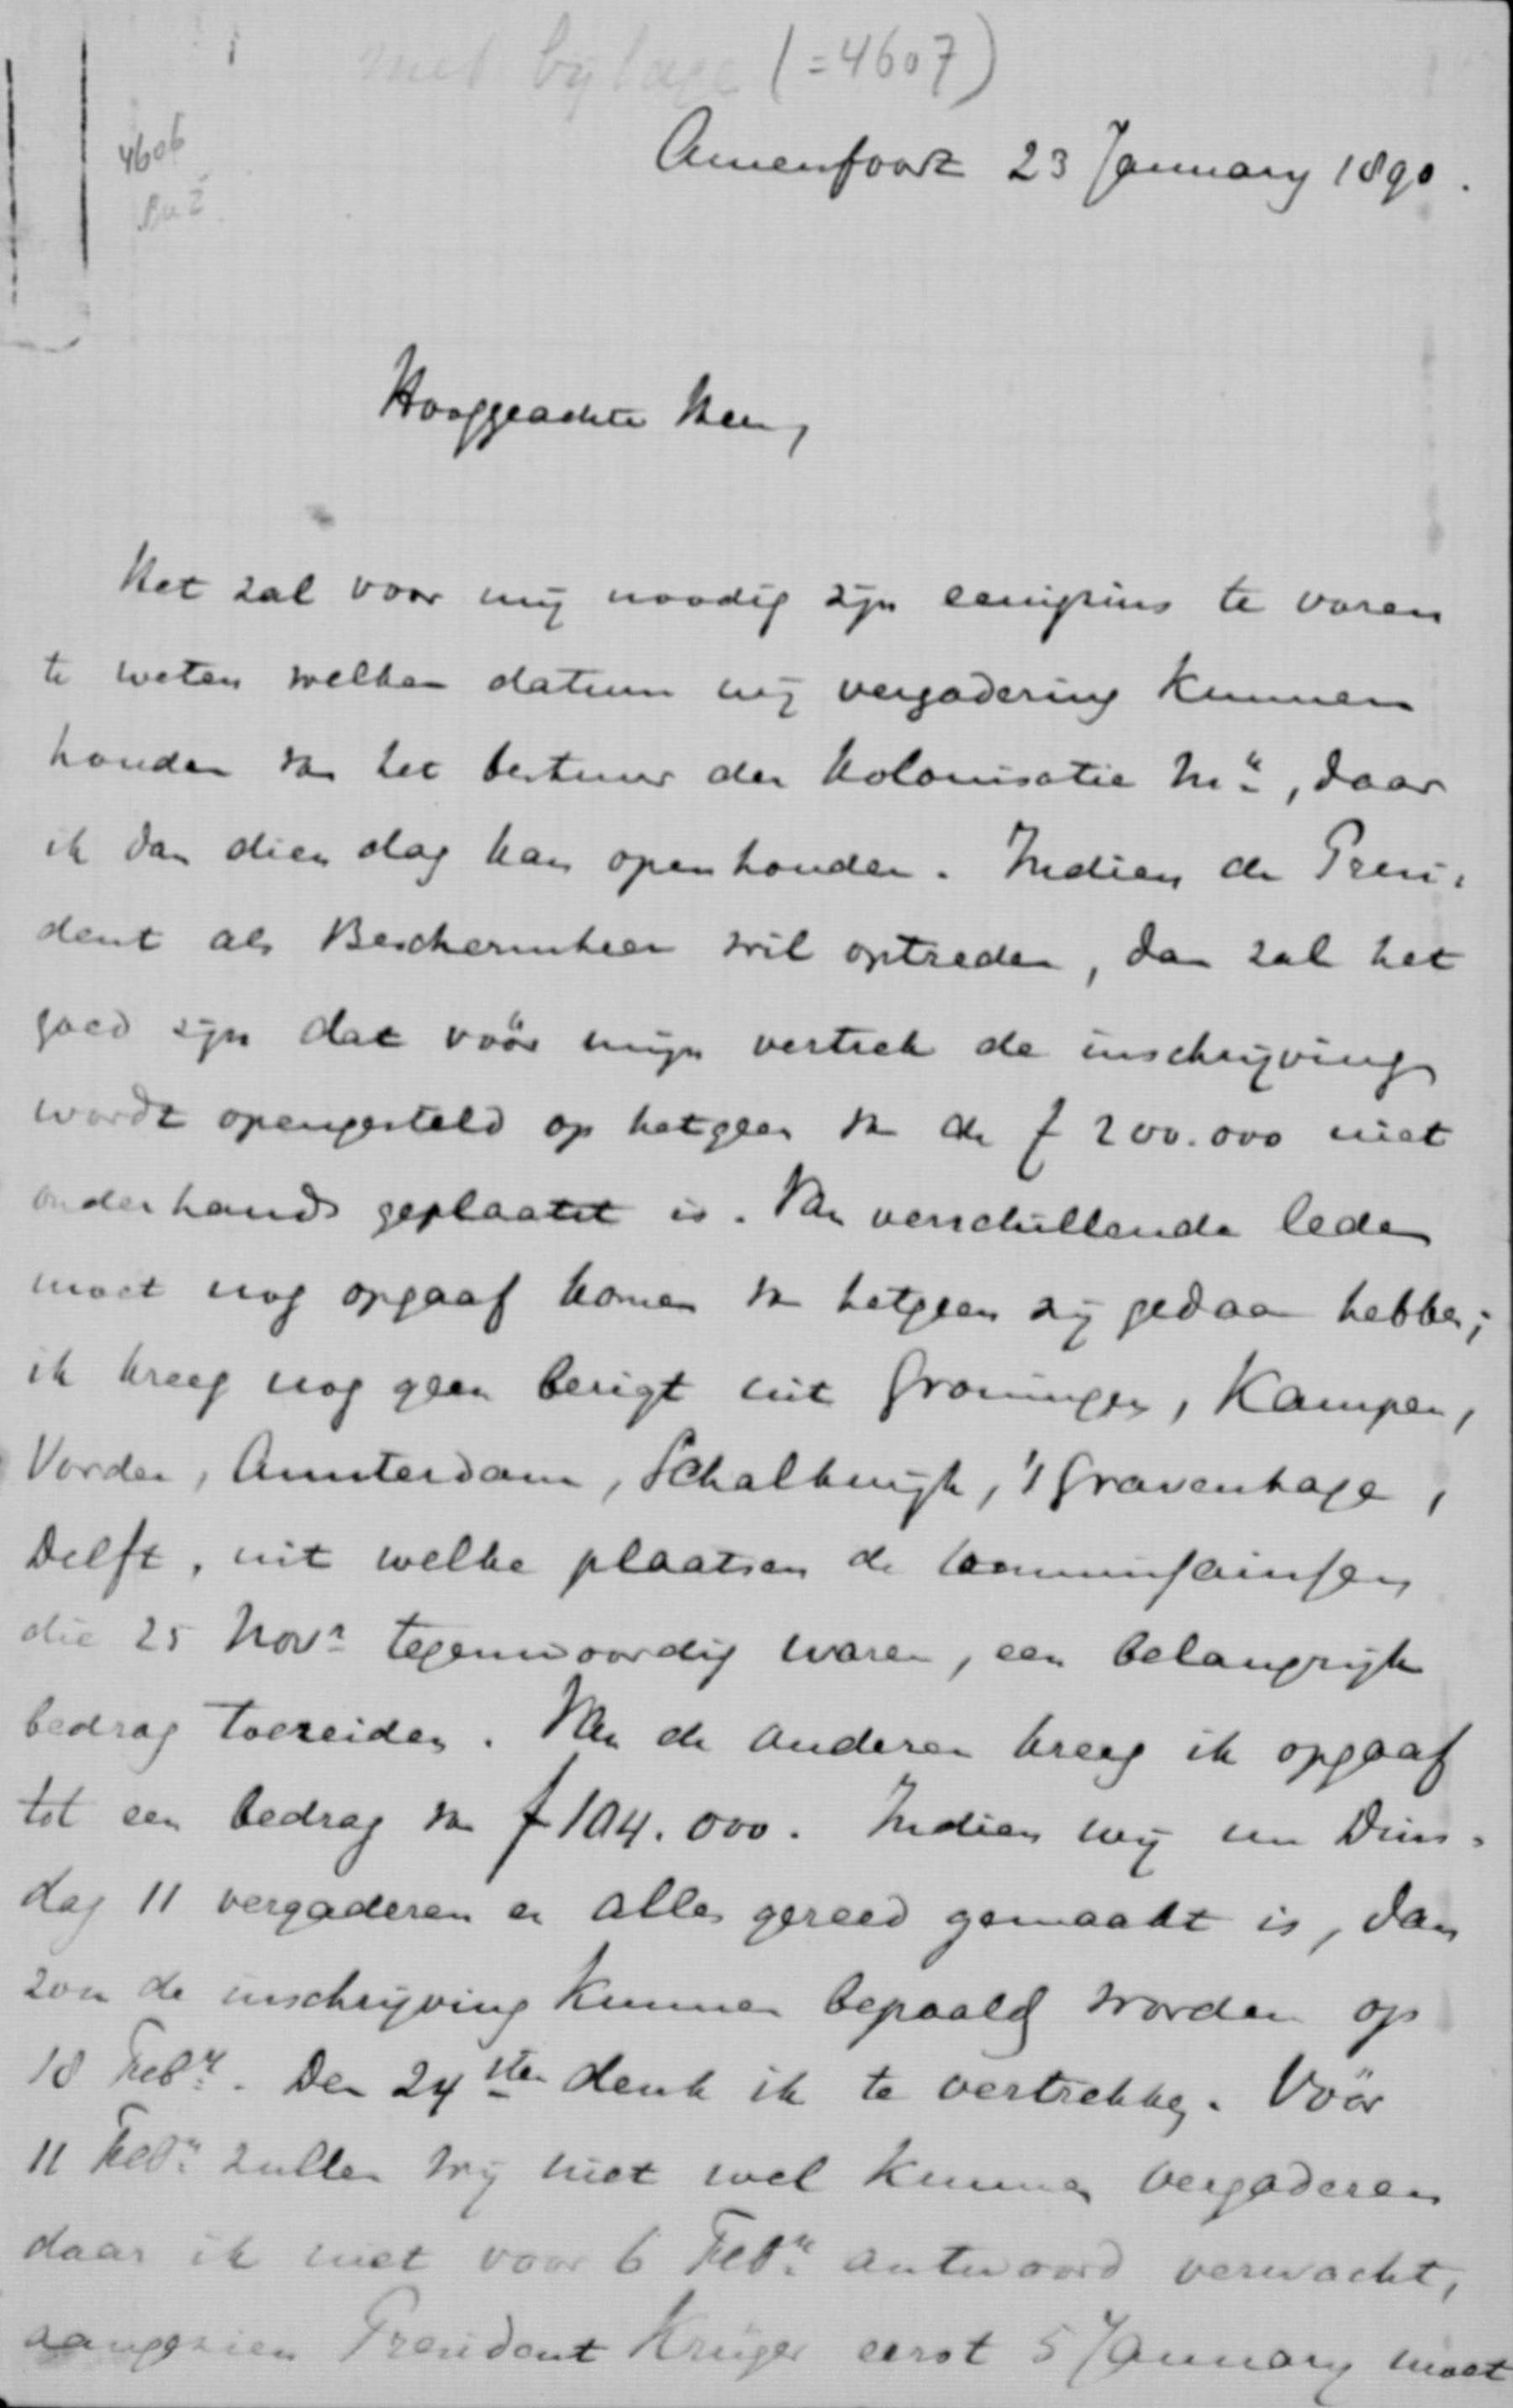 met bylage (=4607)
4606
Amersfoort 23 January 1890.
Hooggeachte Heer,
Het zal voor mij noodig zijn eenigzins te voren
te weten welken datum wij vergadering kunnen
houden van het bestuur der Kolonisatie Mij, daar
ik dan dien dag kan openhouden. Indien de Presi-
dent als Beschermheer wil optreden, dan zal het
goed zijn dat vóór mijn vertrek de inschrijving
wordt opengesteld op hetgeen van de ƒ 200.000 niet
onderhands geplaatst is. Van verschillende leden
moet nog opgaaf komen van hetgeen zij gedaan hebben;
ik kreeg nog geen berigt uit Groningen, Kampen,
Vorden, Amsterdam, Schalkwijk, 's Gravenhage,
Delft, uit welke plaatsen de commissarissen
die 25 Novr tegenwoordig waren, een belangrijk
bedrag toezeiden. Van de anderen kreeg ik opgaaf
tot een bedrag van ƒ 104.000. Indien wij nu Dins-
dag 11 vergaderen en alles gereed gemaakt is, dan
zou de inschrijving kunnen bepaald worden op
18 Febr. Den 24sten denk ik te vertrekken. Vóór
11 Febr. zullen wij niet wel kunnen vergaderen
daar ik niet voor 6 Febr. antwoord verwacht,
aangezien President Kruger eerst 5 January moet